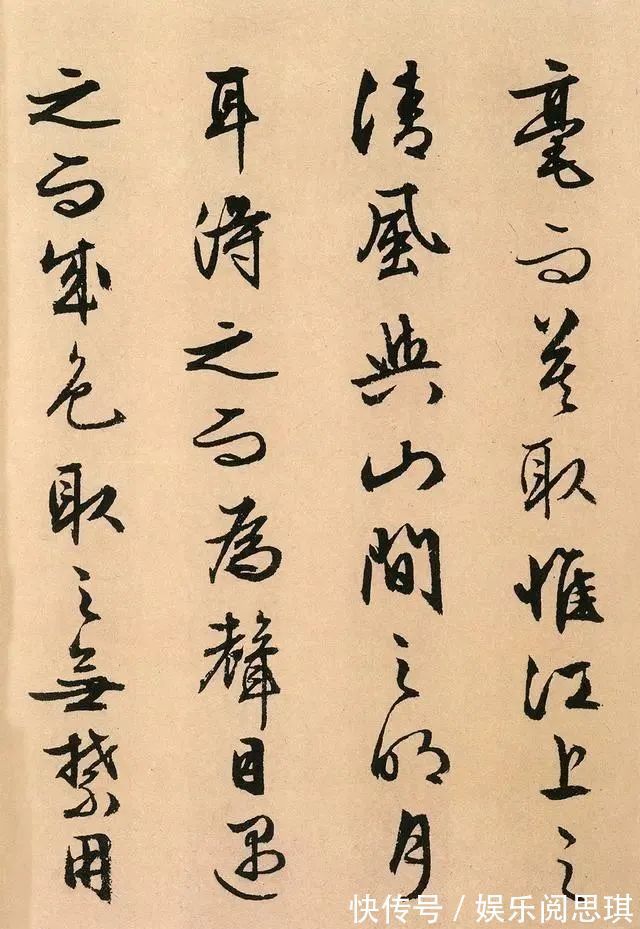 毫而莫取惟江上之
清風與山間之明月
耳得之而為聲目遇
之而成色取之無禁用
快传号/娱乐阅思琪